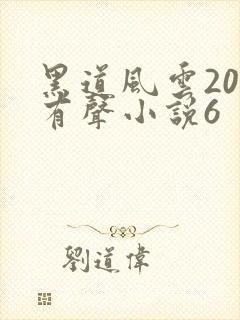 黑道風雲20
有聲小説6
劉道偉